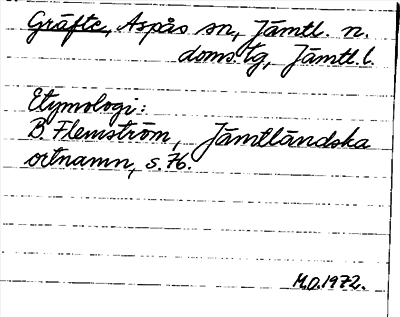 Gräfte, Aspås sn, Jämtl. n.
doms.tg, Jämtl.l.
Etymologi:
B. Flemström, Jämtländska
ortnamn, s.76.
M.O.1972.